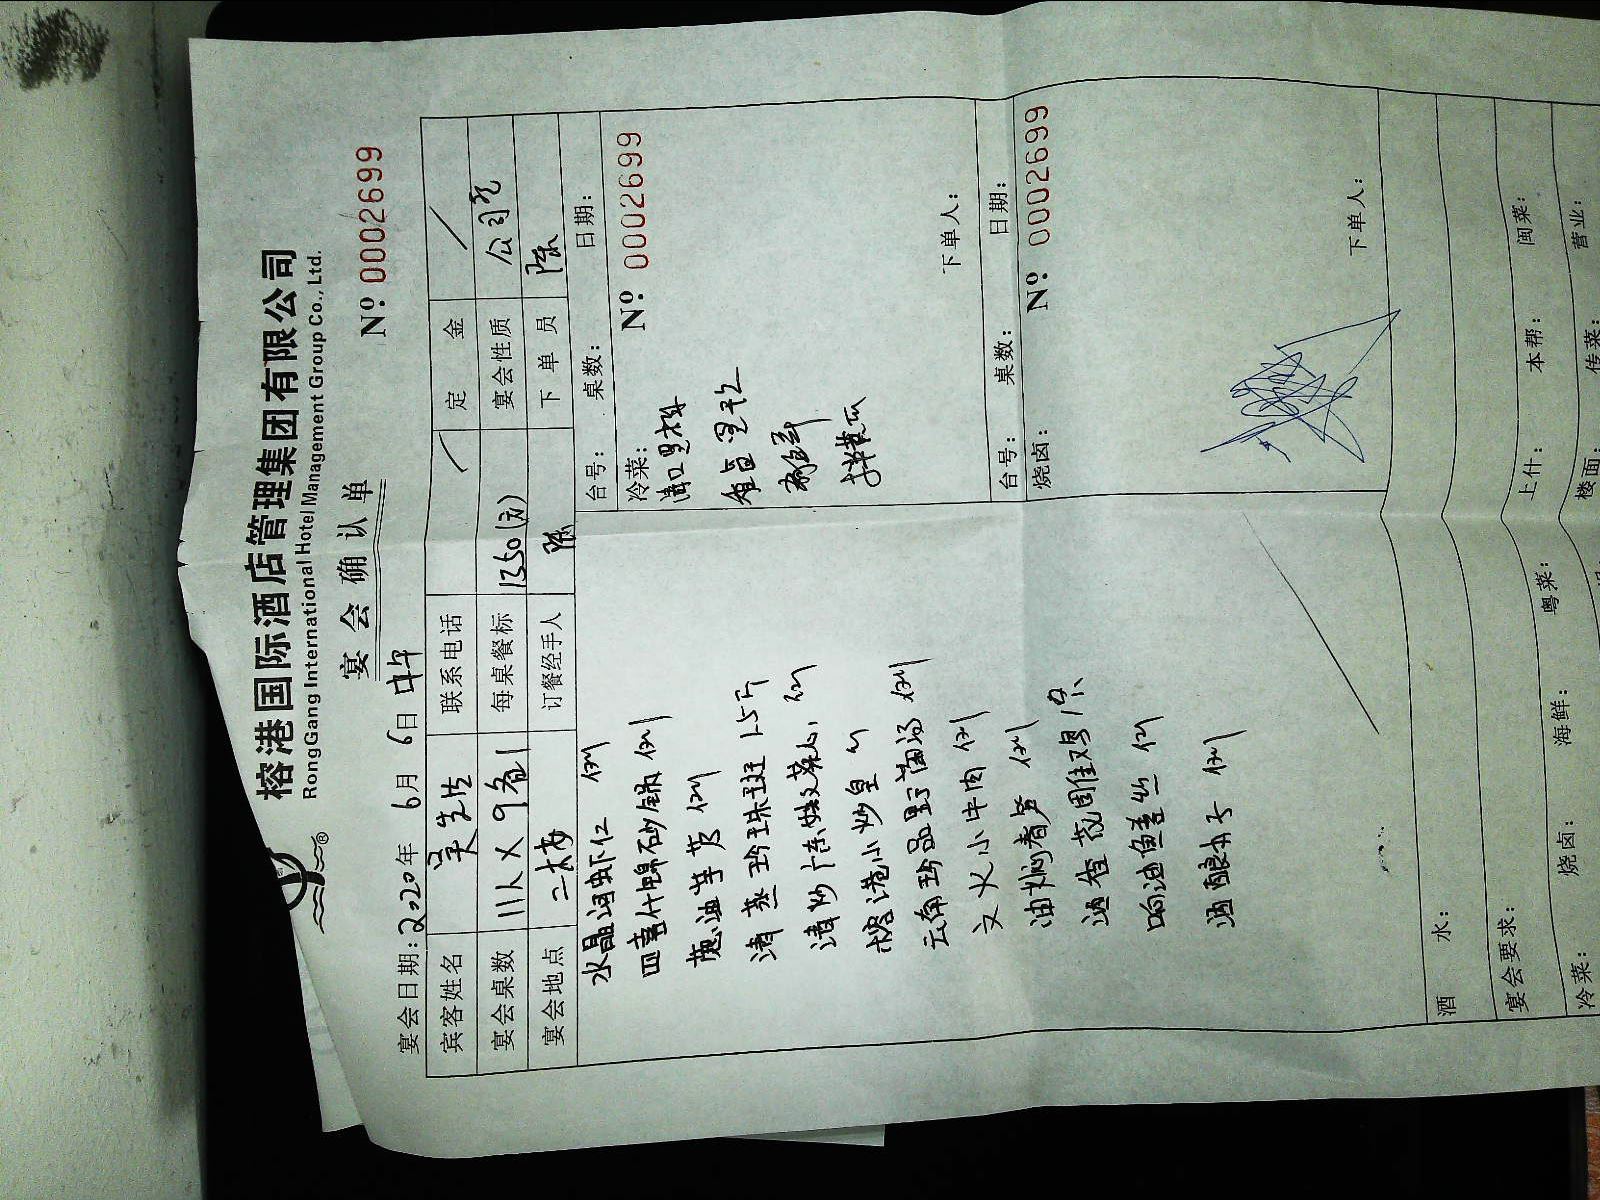 榕港国际酒店管理集团有限公司
RongGang International Hotel Management Group Co., Ltd.
®
宴会确认单
Nº: 0002699
宴会日期: 2020年 6月 6日 中午
宾客姓名 吴先生 联系电话 定金
宴会桌数 11人 每桌餐标 1350 宴会性质 公司
宴会地点 二楼 订餐经手人 陈 下单员 陈
水晶河虾仁 例
四喜什锦砂锅 例
葱油芋艿 例
清蒸珍珠斑 1.5斤
清炒广东菜心 例
榕港小炒皇 例
云南珍品野菌汤 例
文火小牛肉 例
油焖春笋 例
酒香花雕鸡 1只
响油鳝丝 例
酒酿 例
台号: 桌数: 日期:
冷菜:
Nº: 0002699
拌黄瓜
下单人:
台号: 桌数: 日期:
烧卤:
Nº: 0002699
下单人:
酒水:
宴会要求:
冷菜: 烧卤: 海鲜: 粤菜: 上什: 本帮: 闽菜:
楼面: 传菜: 营业: